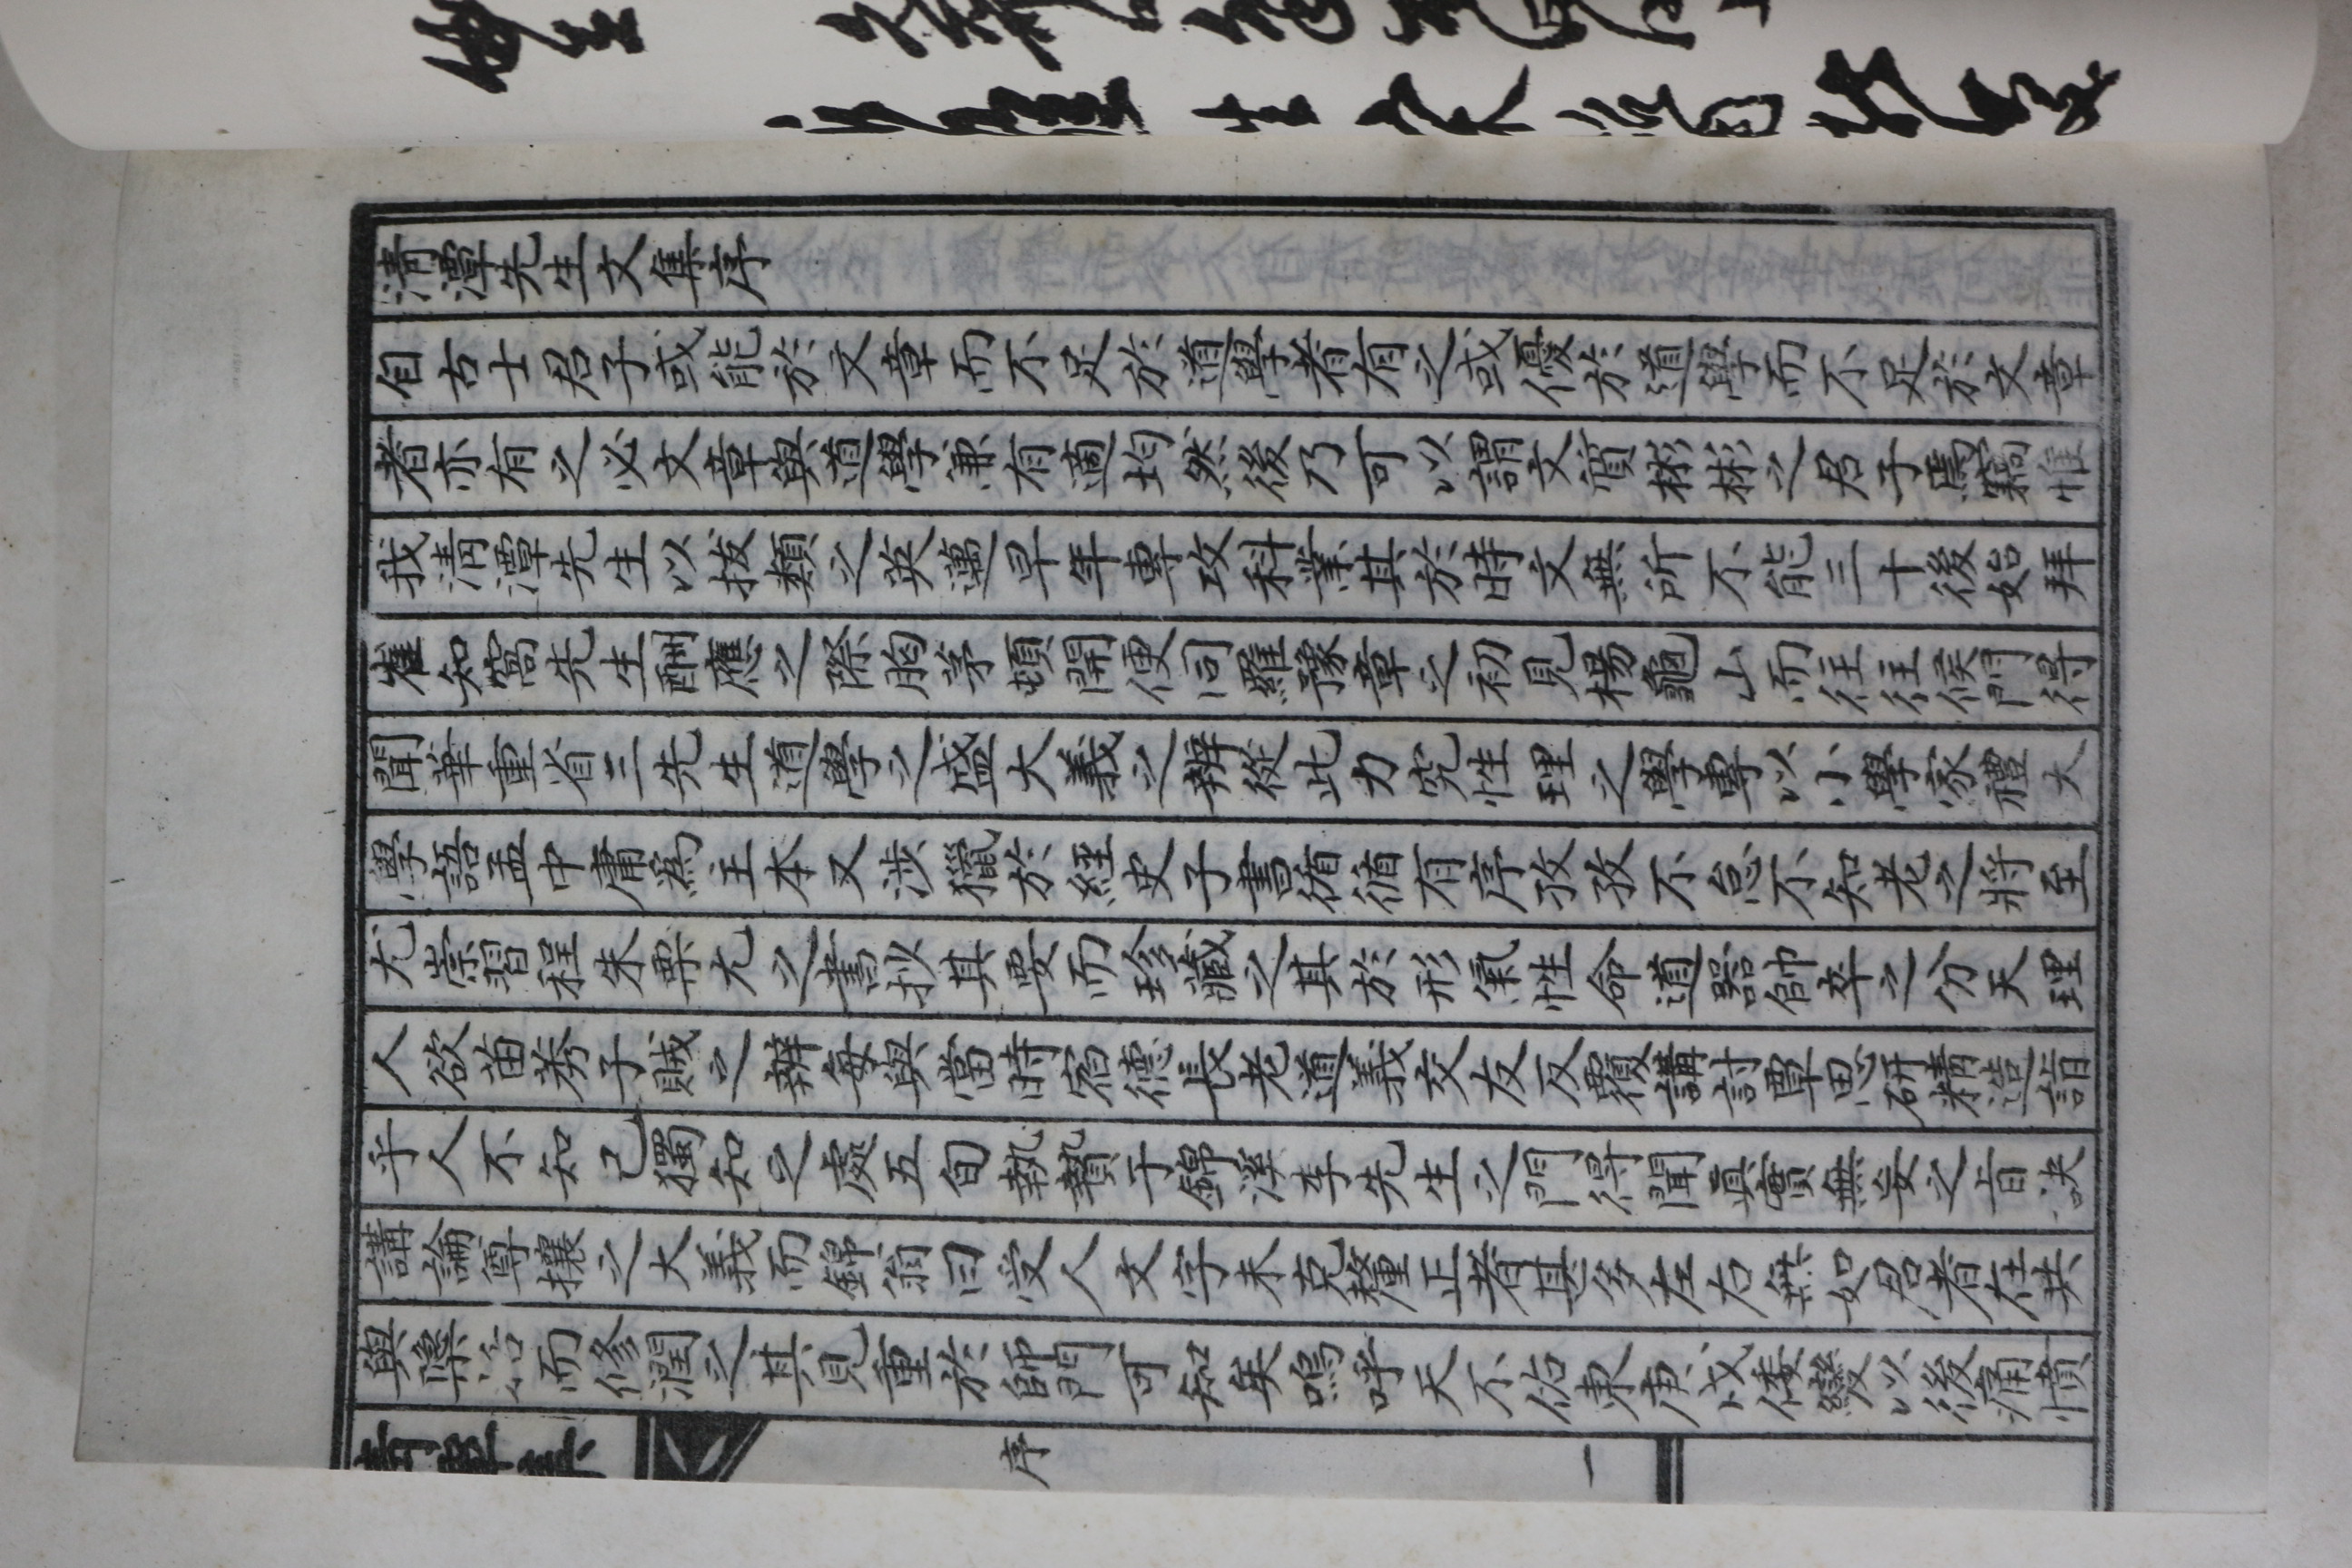 清潭先生文集序
自古士君子或能於文章而不足於道學者有之或優於道學而不足於文章
者亦有之必文章與道學兼有適均然後乃可以謂文質彬彬之君子焉竊惟
我清潭先生以拔類之英邁早年專攻科業其於時文無所不能三十後始拜
崔知窩先生酬應之際胸茅頓開便同羅豫章之初見楊龜山而往往候門得
聞華重省三先生道學之盛大義之辨從此力究性理之學專以小學家禮大
學語孟中庸爲主本又涉獵於經史子書循循有序孜孜不怠不知老之將至
尤崇習程朱栗尤之書抄其要而珍藏之其於形氣性命道器帥卒之分天理
人欲苗莠子賊之辨每與當時宿德長老道義交友反覆講討覃思研精造詣
乎人不知己獨知之處五旬執贄于錦溪李先生之門得聞眞實無妄之旨訣
講論尊攘之大義而錦翁曰受人文字未克釐正者甚多左右無如君者在共
與檃治而修潤之其見重於師門可知矣嗚呼天不佑東庚戌倭變以後痛憤
序
一